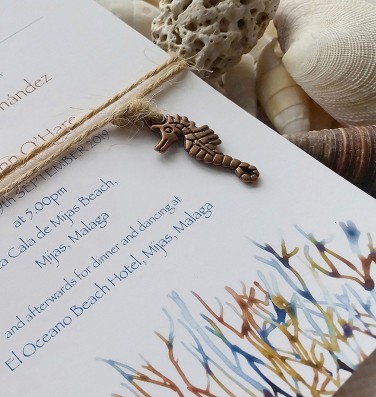 at 5.00pm
Cala de Mijas Beach,
Mijas, Malaga
and afterwards for dinner and dancing at
El Oceano Beach Hotel, Mijas, Malaga